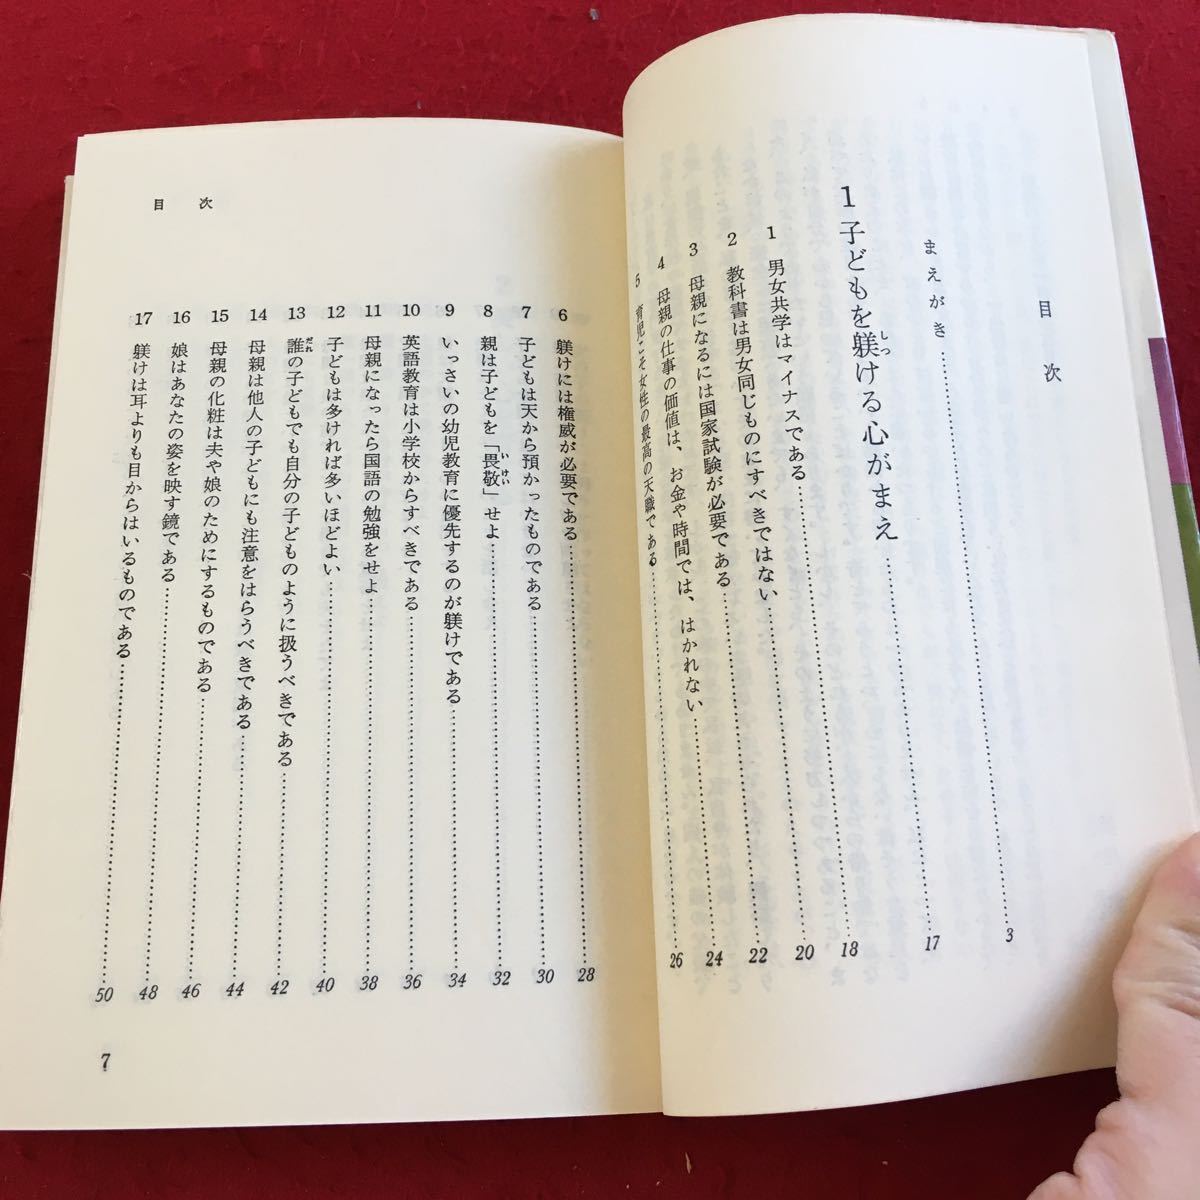 目次
まえがき……3
1 子どもを躾ける心がまえ……17
しつ
1 男女共学はマイナスである……18
2 教科書は男女同じものにすべきではない……20
3 母親になるには国家試験が必要である……22
4 母親の仕事の価値は、お金や時間では、はかれない……24
5 育児こそ女性の最高の天職である……26
目次
6 躾けには権威が必要である……28
7 子どもは天から預かったものである……30
8 親は子どもを「畏敬」せよ……32
いけい
9 いっさいの幼児教育に優先するのが躾けである……34
10 英語教育は小学校からすべきである……36
11 母親になったら国語の勉強をせよ……38
12 子どもは多ければ多いほどよい……40
13 誰の子どもでも自分の子どものように扱うべきである……42
だれ
14 母親は他人の子どもにも注意をはらうべきである……44
15 母親の化粧は夫や娘のためにするものである……46
16 娘はあなたの姿を映す鏡である……48
17 躾けは耳よりも目からはいるものである……50
7